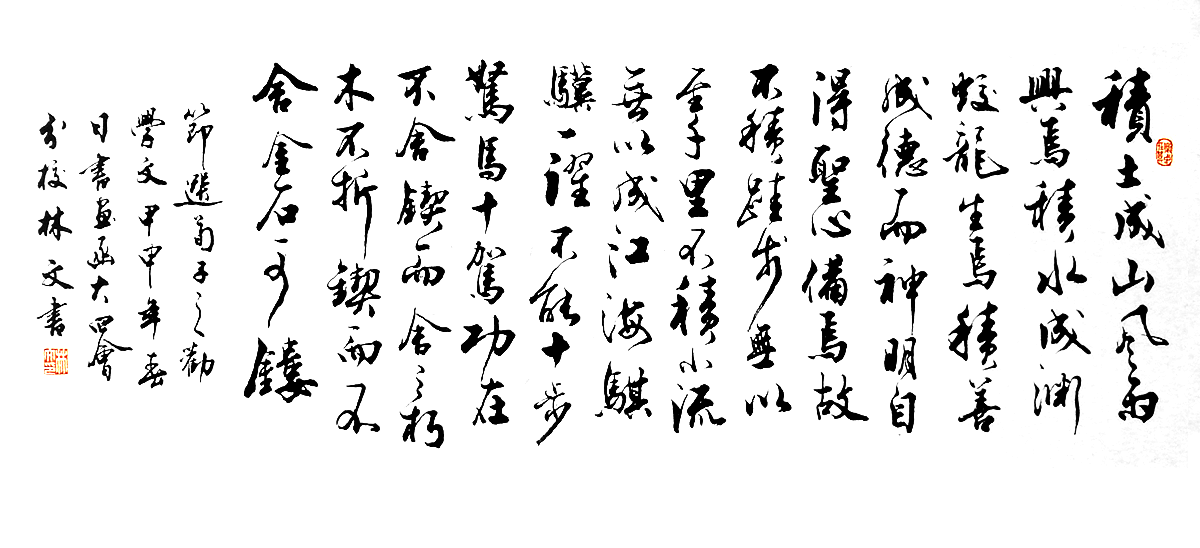 積土成山風雨
興焉積水成渊
蛟龍生焉積善
成德而神明自
得聖心備焉故
不積跬步無以
至千里不積小流
無以成江海騏
驥一躍不能十步
駑馬十駕功在
不舍鍥而舍之朽
木不折鍥而不
舍金石可鏤
節選荀子之勸
學文甲申年春
日書畫函大四會
於校林文書